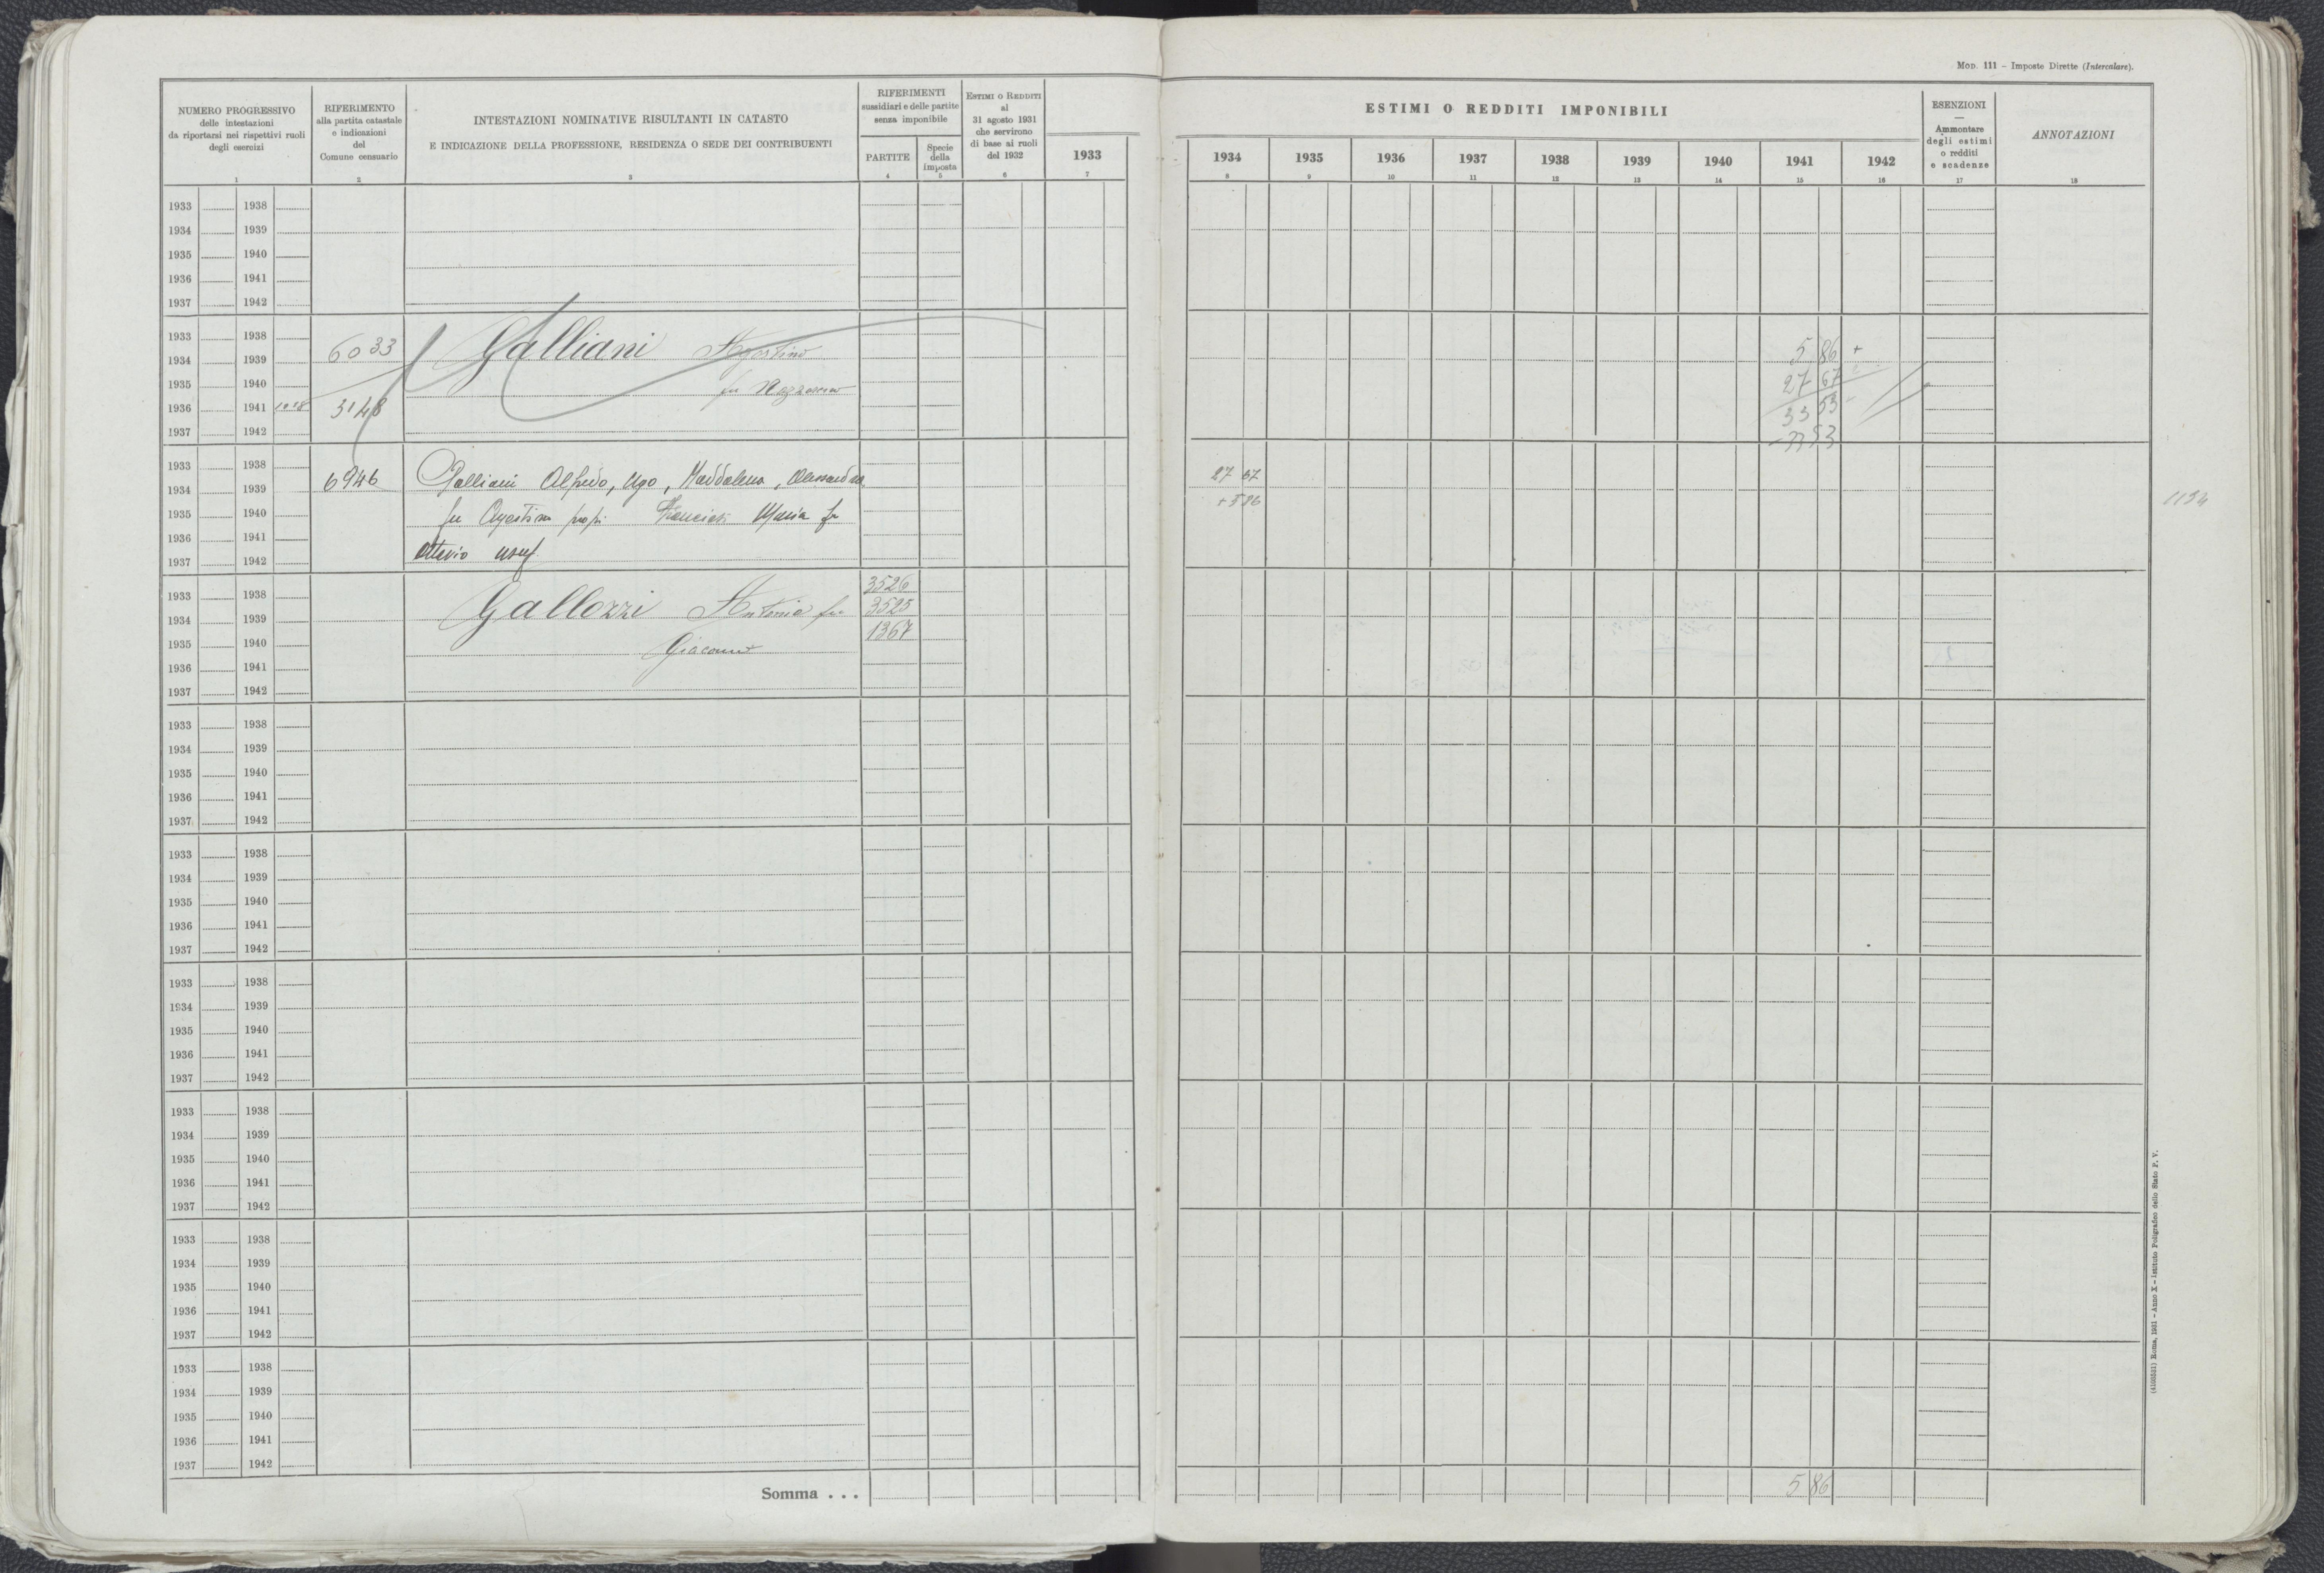 MOD. 111 - Imposte Dirette (Intercalare).
NUMERO PROGRESSIVO
delle intestazioni
da riportarsi nei rispettivi ruoli
degli esercizi
1
RIFERIMENTO
alla partita catastale
e indicazioni
del
Comune censuario
2
INTESTAZIONI NOMINATIVE RISULTANTI IN CATASTO
E INDICAZIONE DELLA PROFESSIONE, RESIDENZA O SEDE DEI CONTRIBUENTI
3
RIFERIMENTI
sussidiari e delle partite
senza imponibile
PARTITE
4
Specie
della
imposta
5
ESTIMI O REDDITI
al
31 agosto 1931
che servirono
di base ai ruoli
del 1932
6
1933
7
ESTIMI O REDDITI IMPONIBILI
1934 1935 1936 1937 1938 1939 1940 1941 1942
8 9 10 11 12 13 14 15 16
ESENZIONI
—
Ammontare
degli estimi
o redditi
e scadenze
17
ANNOTAZIONI
18
1933 1938
1934 1939
1935 1940
1936 1941
1937 1942
1933 1938
1934 1939 6033 Galliani Agostino 5 86 +
1935 1940 fu 27 67
1936 1941 3148 33 53
1937 1942 33 53
1933 1938
1934 1939 6946 Galliani Alfredo, Ugo, Maddalena, Alessandra 27 67
1935 1940 fu Agostino propi Maria fu + 5 86 1134
1936 1941
1937 1942 Ottavio usuf.
1933 1938 3526
1934 1939 Gallozzi Antonio fu 3525
1935 1940 Giacomo 1367
1936 1941
1937 1942
1933 1938
1934 1939
1935 1940
1936 1941
1937 1942
1933 1938
1934 1939
1935 1940
1936 1941
1937 1942
1933 1938
1934 1939
1935 1940
1936 1941
1937 1942
1933 1938
1934 1939
1935 1940
1936 1941
1937 1942
1933 1938
1934 1939
1935 1940
1936 1941
1937 1942
1933 1938
1934 1939
1935 1940
1936 1941
1937 1942
Somma . . . 5 86
Roma, 1931 - Anno X - Istituto Poligrafico dello Stato P. V.